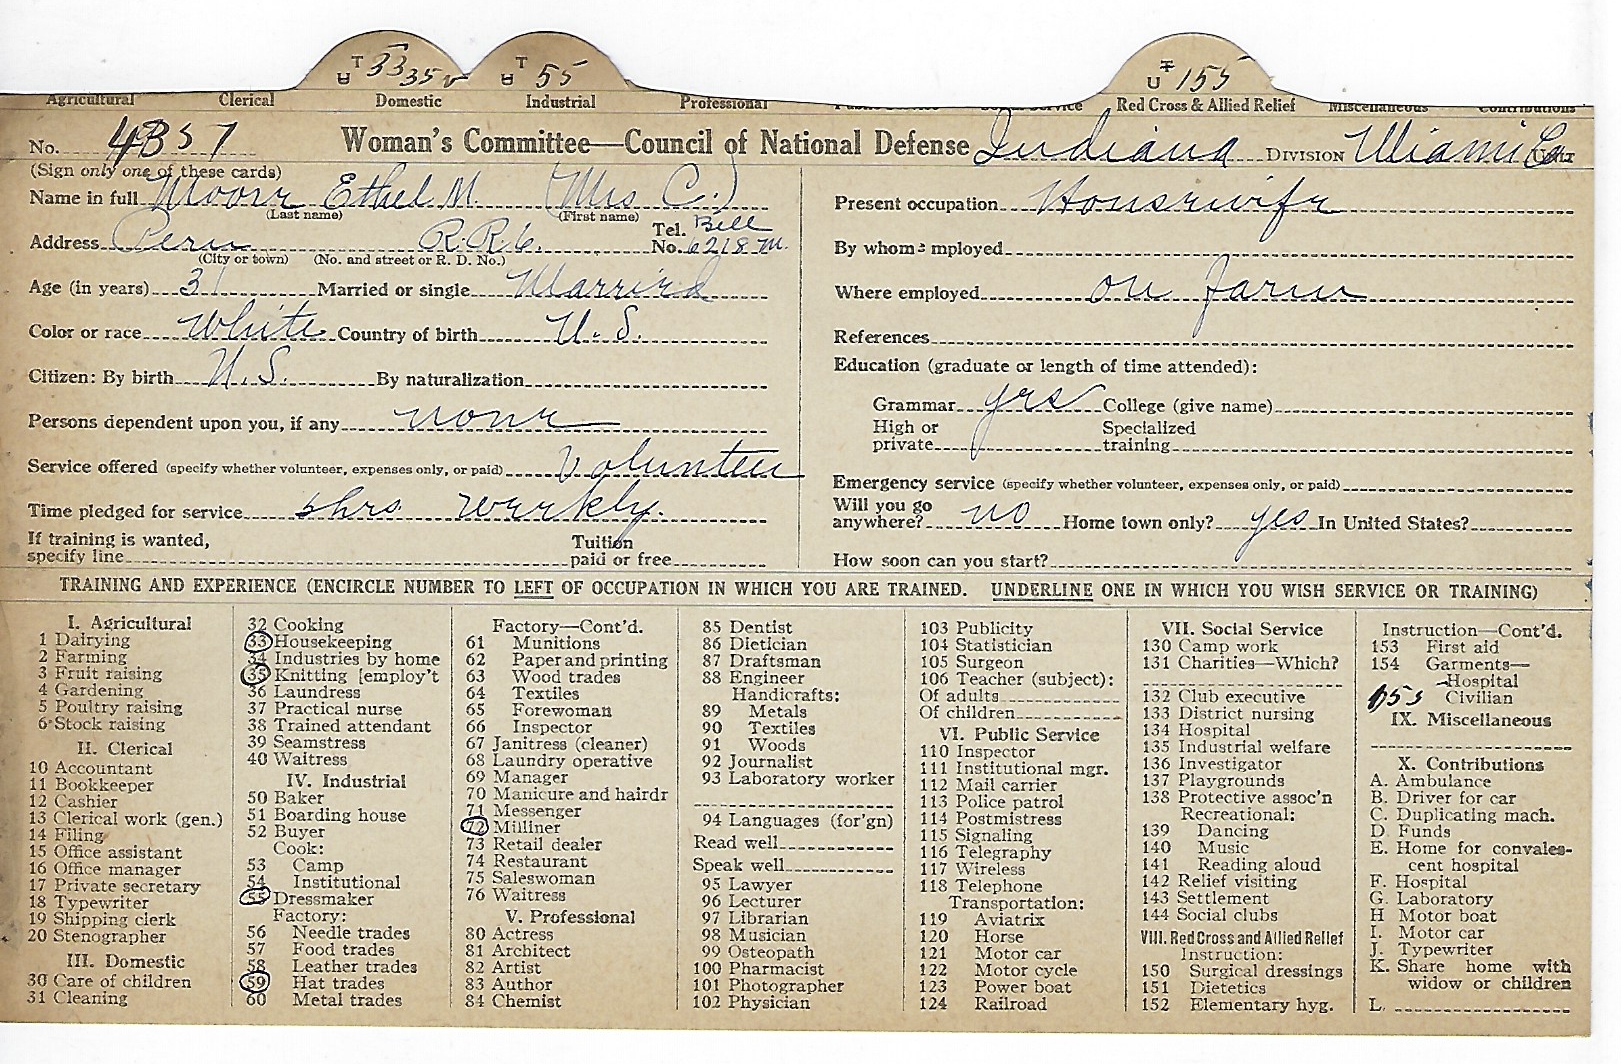 T U 33 35 v T U 55 T U 155
Agricultural Clerical Domestic Industrial Professional Public Service Social Service Red Cross & Allied Relief Miscellaneous Contributions
No. 4357 Woman's Committee—Council of National Defense Indiana DIVISION Miami Co. UNIT
(Sign only one of these cards)
Name in full Moore Ethel M. (Mrs C.)
(Last name) (First name)
Address Peru R.R.6. Tel. No. Bell 6218 M.
(City or town) (No. and street or R. D. No.)
Age (in years) 31 Married or single Married
Color or race White Country of birth U. S.
Citizen: By birth U. S. By naturalization
Persons dependent upon you, if any none
Service offered (specify whether volunteer, expenses only, or paid) Volunteer
Time pledged for service hrs weekly.
If training is wanted, specify line Tuition paid or free
Present occupation Housewife
By whom employed
Where employed on farm
References
Education (graduate or length of time attended):
Grammar yes College (give name)
High or private Specialized training
Emergency service (specify whether volunteer, expenses only, or paid)
Will you go anywhere? no Home town only? yes In United States?
How soon can you start?
TRAINING AND EXPERIENCE (ENCIRCLE NUMBER TO LEFT OF OCCUPATION IN WHICH YOU ARE TRAINED. UNDERLINE ONE IN WHICH YOU WISH SERVICE OR TRAINING)
I. Agricultural
1 Dairying
2 Farming
3 Fruit raising
4 Gardening
5 Poultry raising
6 Stock raising
II. Clerical
10 Accountant
11 Bookkeeper
12 Cashier
13 Clerical work (gen.)
14 Filing
15 Office assistant
16 Office manager
17 Private secretary
18 Typewriter
19 Shipping clerk
20 Stenographer
III. Domestic
30 Care of children
31 Cleaning
32 Cooking
33 Housekeeping
34 Industries by home
35 Knitting [employ't
36 Laundress
37 Practical nurse
38 Trained attendant
39 Seamstress
40 Waitress
IV. Industrial
50 Baker
51 Boarding house
52 Buyer
Cook:
53 Camp
54 Institutional
55 Dressmaker
Factory:
56 Needle trades
57 Food trades
58 Leather trades
59 Hat trades
60 Metal trades
Factory—Cont'd.
61 Munitions
62 Paper and printing
63 Wood trades
64 Textiles
65 Forewoman
66 Inspector
67 Janitress (cleaner)
68 Laundry operative
69 Manager
70 Manicure and hairdr
71 Messenger
72 Milliner
73 Retail dealer
74 Restaurant
75 Saleswoman
76 Waitress
V. Professional
80 Actress
81 Architect
82 Artist
83 Author
84 Chemist
85 Dentist
86 Dietician
87 Draftsman
88 Engineer
Handicrafts:
89 Metals
90 Textiles
91 Woods
92 Journalist
93 Laboratory worker
94 Languages (for'gn)
Read well
Speak well
95 Lawyer
96 Lecturer
97 Librarian
98 Musician
99 Osteopath
100 Pharmacist
101 Photographer
102 Physician
103 Publicity
104 Statistician
105 Surgeon
106 Teacher (subject):
Of adults
Of children
VI. Public Service
110 Inspector
111 Institutional mgr.
112 Mail carrier
113 Police patrol
114 Postmistress
115 Signaling
116 Telegraphy
117 Wireless
118 Telephone
Transportation:
119 Aviatrix
120 Horse
121 Motor car
122 Motor cycle
123 Power boat
124 Railroad
VII. Social Service
130 Camp work
131 Charities—Which?
132 Club executive
133 District nursing
134 Hospital
135 Industrial welfare
136 Investigator
137 Playgrounds
138 Protective assoc'n
Recreational:
139 Dancing
140 Music
141 Reading aloud
142 Relief visiting
143 Settlement
144 Social clubs
VIII. Red Cross and Allied Relief
Instruction:
150 Surgical dressings
151 Dietetics
152 Elementary hyg.
Instruction—Cont'd.
153 First aid
154 Garments—
Hospital
155 Civilian
IX. Miscellaneous
X. Contributions
A. Ambulance
B. Driver for car
C. Duplicating mach.
D. Funds
E. Home for convales-
cent hospital
F. Hospital
G. Laboratory
H Motor boat
I. Motor car
J. Typewriter
K. Share home with
widow or children
L.